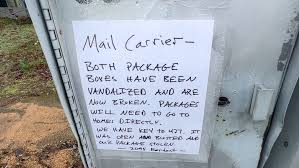 Mail Carrier —
BOTH PACKAGE
BOXES HAVE BEEN
VANDALIZED AND ARE
NOW BROKEN. PACKAGES
WILL NEED TO GO TO
HOMES DIRECTLY.
WE HAVE KEY TO 4T7. IT
WAS OPEN AND BUSTED AND
OUR PACKAGE STOLEN.